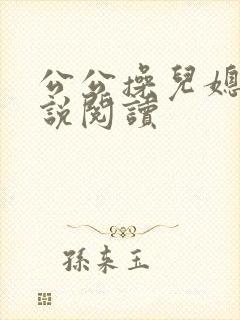 公公操兒媳
說閱讀
孫來玉